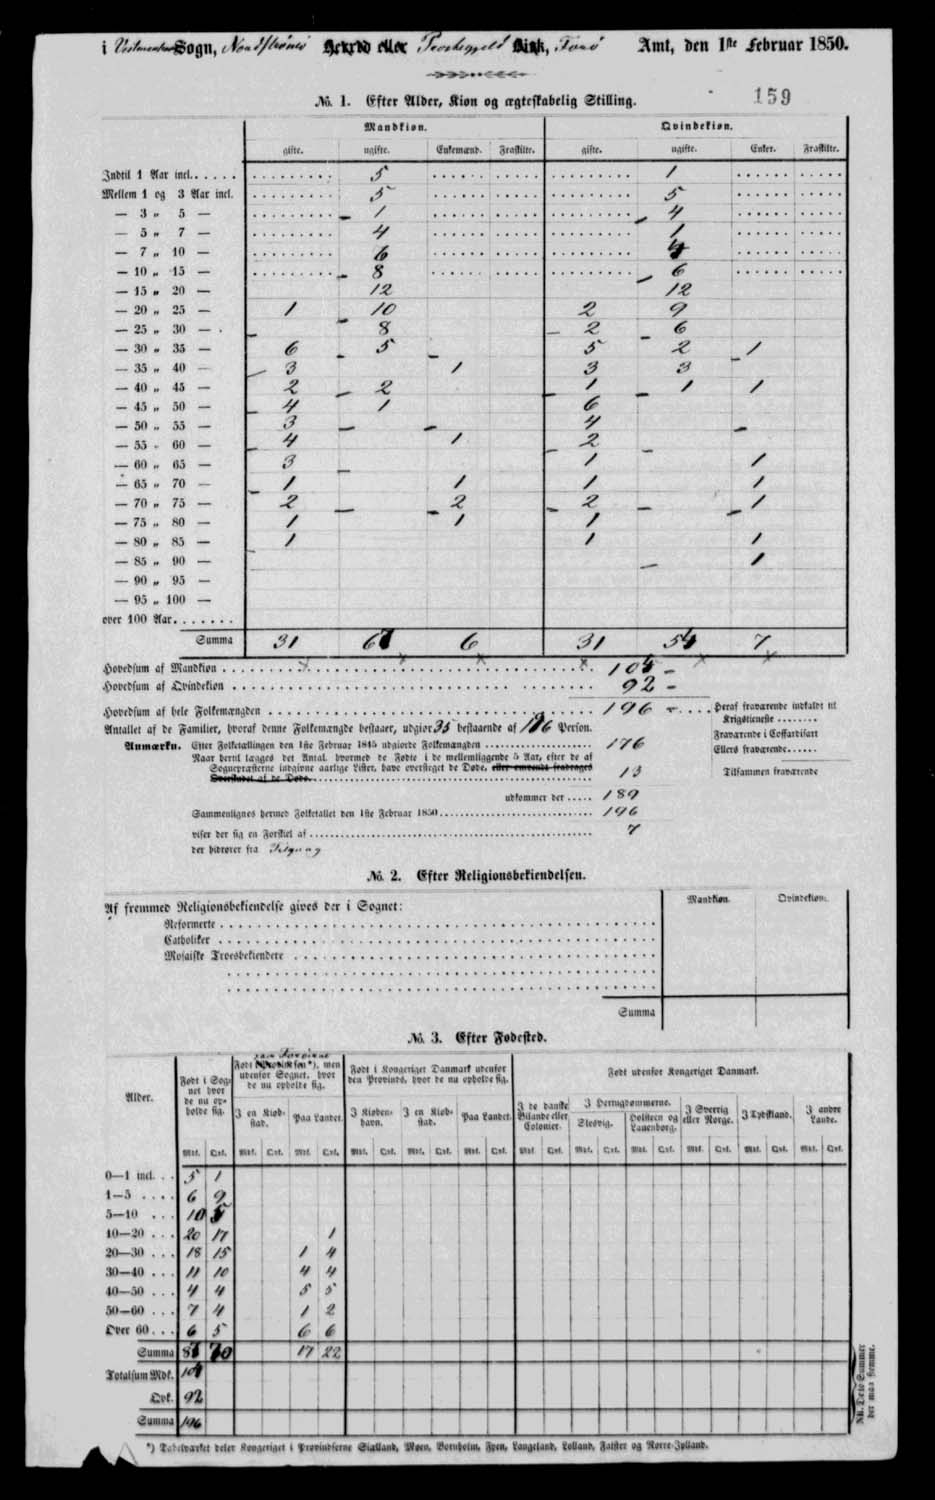 i Vestmanhavn Sogn, Nordstrømø Herred eller Præstegjeld Birk, Færø Amt, den 1ste Februar 1850.
159
No. 1. Efter Alder, Kiøn og ægteskabelig Stilling.
Mandkiøn. Qvindekiøn.
gifte. ugifte. Enkemænd. Fraskilte. gifte. ugifte. Enker. Fraskilte.
Indtil 1 Aar incl. 5 1
Mellem 1 og 3 Aar incl. 5 5
— 3 „ 5 — 1 4
— 5 „ 7 — 4 1
— 7 „ 10 — 6 4
— 10 „ 15 — 8 6
— 15 „ 20 — 12 12
— 20 „ 25 — 1 10 2 9
— 25 „ 30 — 8 2 6
— 30 „ 35 — 6 5 5 2 1
— 35 „ 40 — 3 1 3 3
— 40 „ 45 — 2 2 1 1 1
— 45 „ 50 — 4 1 6
— 50 „ 55 — 3 4
— 55 „ 60 — 4 1 2
— 60 „ 65 — 3 1 1
— 65 „ 70 — 1 1 1 1
— 70 „ 75 — 2 2 2 1
— 75 „ 80 — 1 1 1
— 80 „ 85 — 1 1 1
— 85 „ 90 — 1
— 90 „ 95 —
— 95 „ 100 —
over 100 Aar
Summa 31 67 6 31 54 7
Hovedsum af Mandkiøn 104
Hovedsum af Qvindekiøn 92
Hovedsum af hele Folkemængden 196
Heraf fraværende indkaldt til
Krigstieneste
Fraværende i Coffardifart
Ellers fraværende
Tilsammen fraværende
Antallet af de Familier, hvoraf denne Folkemængde bestaaer, udgiør 35 bestaaende af 196 Person.
Anmærkn. Efter Folketællingen den 1ste Februar 1845 udgiorde Folkemængden 176
Naar hertil lægges det Antal, hvormed de Fødte i de mellemliggende 5 Aar, efter de af
Sognepræsterne indgivne aarlige Lister, have oversteget de Døde, eller omvendt fradrages
Overskudet af de Døde 13
udkommer der 189
Sammenlignes hermed Folketallet den 1ste Februar 1850 196
viser der sig en Forskiel af 7
der hidrører fra
No. 2. Efter Religionsbekiendelsen.
Mandkiøn. Qvindekiøn.
Af fremmed Religionsbekiendelse gives der i Sognet:
Reformerte
Catholiker
Mosaiske Troesbekiendere
Summa
No. 3. Efter Fødested.
Alder.
Født i Sognet hvor de nu opholde sig.
Født i Provindsen*), men udenfor Sognet, hvor de nu opholde sig.
Født i Kongeriget Danmark udenfor den Provinds, hvor de nu opholde sig.
Født udenfor Kongeriget Danmark.
I en Kiøbstad. Paa Landet. I Kiøbenhavn. I en Kiøbstad. Paa Landet. I de danske Bilande eller Colonier. I Hertugdømmerne. Slesvig. Holsteen og Lauenborg. I Sverrig eller Norge. I Tydskland. I andre Lande.
Mdk. Qvk. Mdk. Qvk. Mdk. Qvk. Mdk. Qvk. Mdk. Qvk. Mdk. Qvk. Mdk. Qvk. Mdk. Qvk. Mdk. Qvk. Mdk. Qvk. Mdk. Qvk. Mdk. Qvk.
0—1 incl. 5 1
1—5 6 9
5—10 10 5
10—20 20 17 1
20—30 18 15 1 4
30—40 11 10 4 4
40—50 4 4 5 5
50—60 7 4 1 2
Over 60 6 5 6 6
Summa 87 70 17 22
Totalsum Mdk. 104
Qvk. 92
Summa 196
NB. Disse Summer
der maa stemme.
*) Tabelværket deler Kongeriget i Provindserne Siælland, Møen, Bornholm, Fyen, Langeland, Lolland, Falster og Nørre-Jylland.